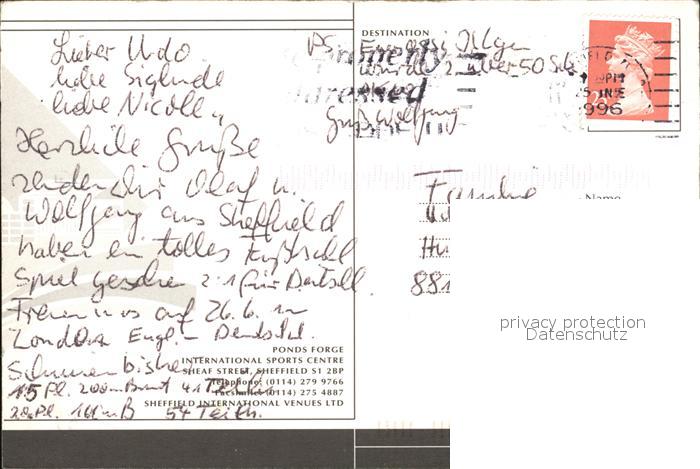 Lieber Udo
liebe Sieglinde
liebe Nicole,
Herzliche Grüße
senden dir Olaf u.
Wolfgang aus Sheffield
haben ein tolles Fußball
Spiel gesehen 2:1 für Deutschl.
Freuen uns auf 26.6. in
London Engl. - Deutschl.
Schwimmen bisher
15 Pl. 200m Brust 41 Teiln.
20 Pl. 100m B 54 Teiln.
PONDS FORGE
INTERNATIONAL SPORTS CENTRE
SHEAF STREET, SHEFFIELD S1 2BP
Telephone: (0114) 279 9766
Facsimile: (0114) 275 4887
SHEFFIELD INTERNATIONAL VENUES LTD
DESTINATION
PS.
wurde 2. über 50 Sch
Gruß Wolfgang
PM
1996
Familie
Ud
Hu
881
Name
privacy protection
Datenschutz